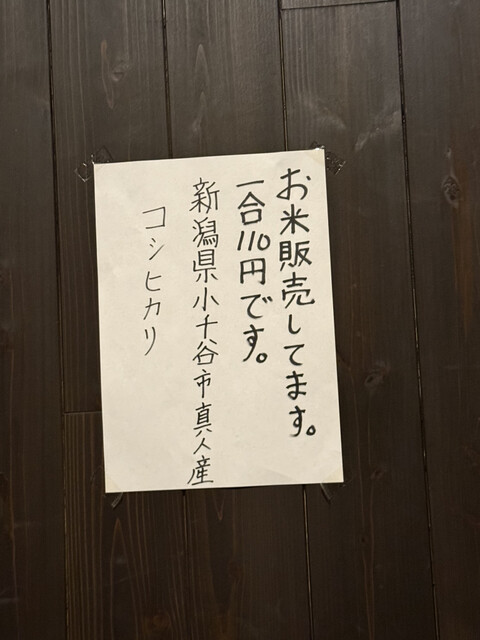 お米販売してます。
一合110円です。
新潟県小千谷市真人産
コシヒカリ